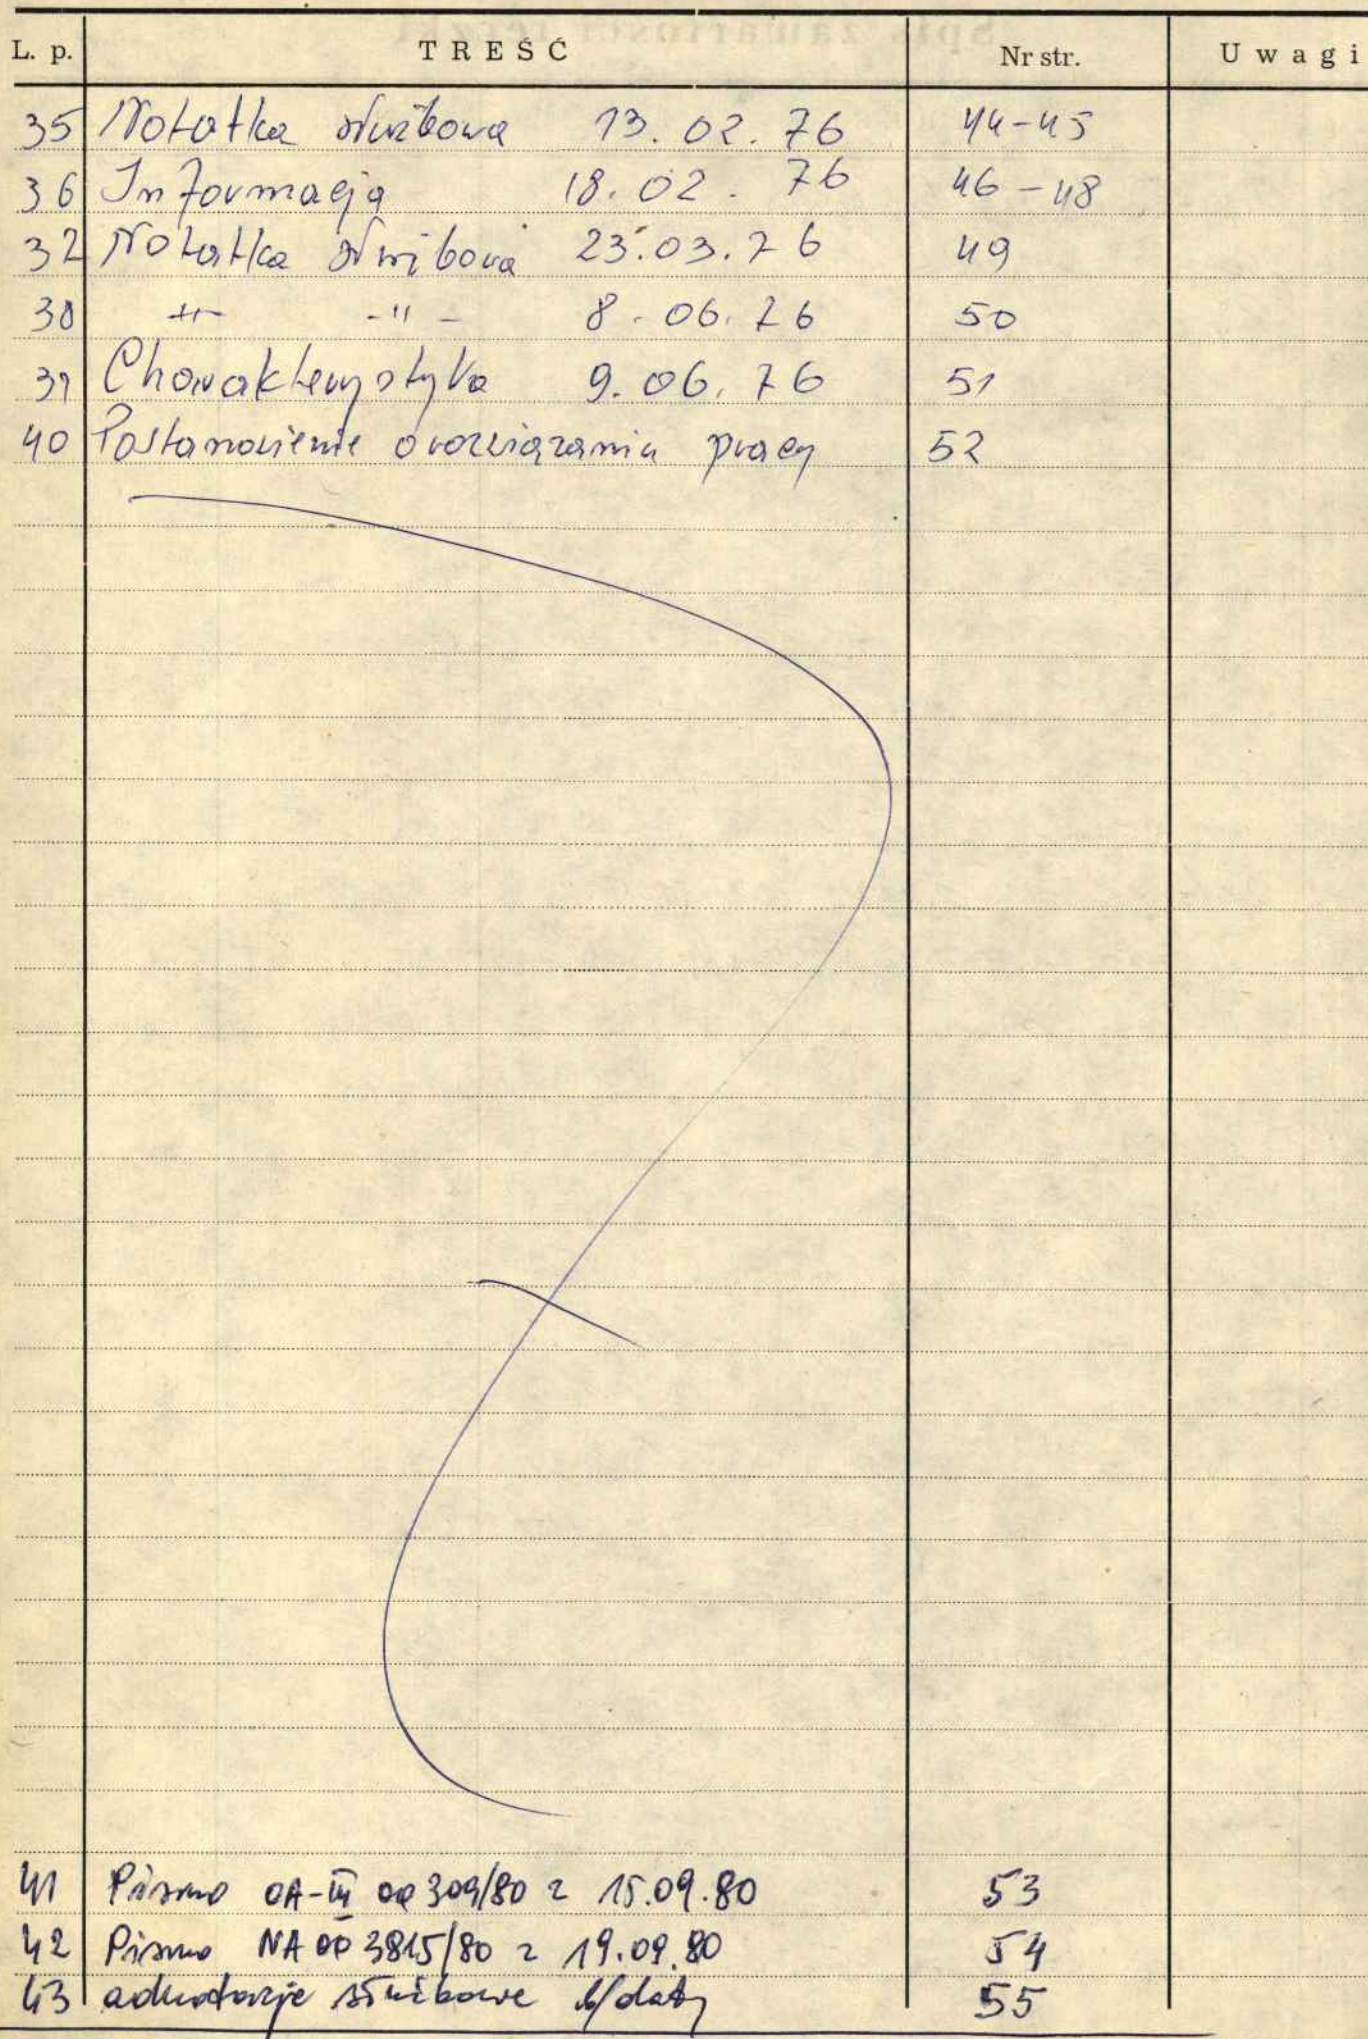 L. p. TREŚĆ Nr str. Uwagi
35 Notatka służbowa 13.02.76 44-45
36 Informacja 18.02.76 46-48
37 Notatka służbowa 23.03.76 49
38 -"- -"- 8.06.76 50
39 Charakterystyka 9.06.76 51
40 Postanowienie o rozwiązaniu pracy 52
41 Pismo OA-III 309/80 z 15.09.80 53
42 Pismo NA 3815/80 z 19.09.80 54
43 adnotacje służbowe b/daty 55